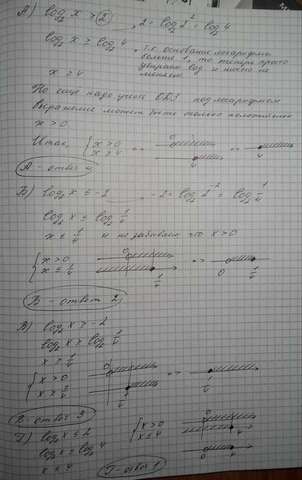 А) log₂ x ≥ 2, 2 = log₂ 2² = log₂ 4
log₂ x ≥ log₂ 4, т.к. основание логарифма
больше 1, то теперь просто
убираем log и ничего не
меняем
x ≥ 4
Но еще надо учесть ОДЗ под логарифмом
Выражение может быть только положительное
x > 0
Итак, { x > 0
x ≥ 4 =>
0 4 4
А - ответ 4
Б) log₂ x ≤ -2 -2 = log₂ 2⁻² = log₂ 1/4
log₂ x ≤ log₂ 1/4
x ≤ 1/4 и не забываем что x > 0
{ x > 0
x ≤ 1/4 =>
0 1/4 0 1/4
Б - ответ 2
В) log₂ x ≥ -2
log₂ x ≥ log₂ 1/4
x ≥ 1/4
{ x > 0
x ≥ 1/4 =>
0 1/4 1/4
В - ответ 3
Г) log₂ x ≤ 2
log₂ x ≤ log₂ 4
x ≤ 4
{ x > 0
x ≤ 4
0 4
0 4
Г - ответ 1